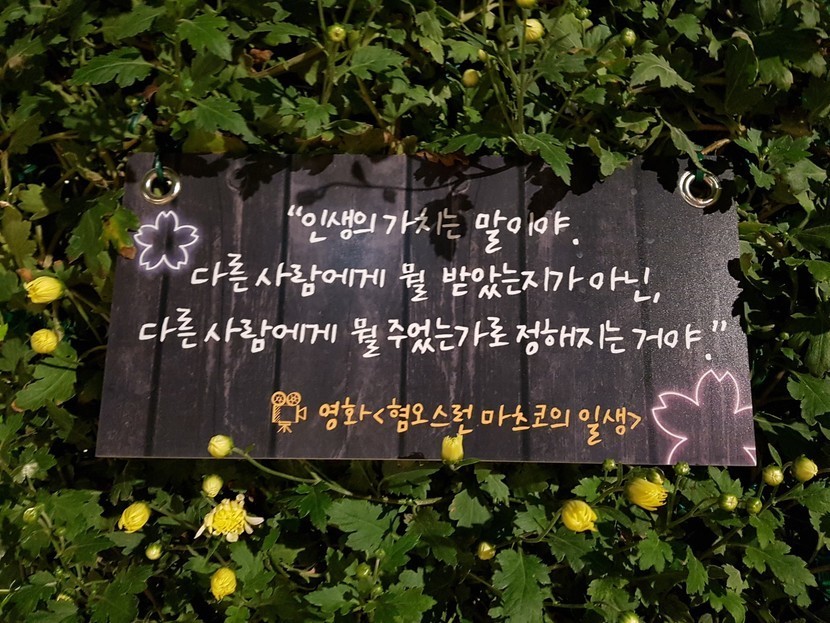 “인생의 가치는 말이야.
다른 사람에게 뭘 받았는지가 아닌,
다른 사람에게 뭘 주었는가로 정해지는 거야.”
영화<혐오스런 마츠코의 일생>